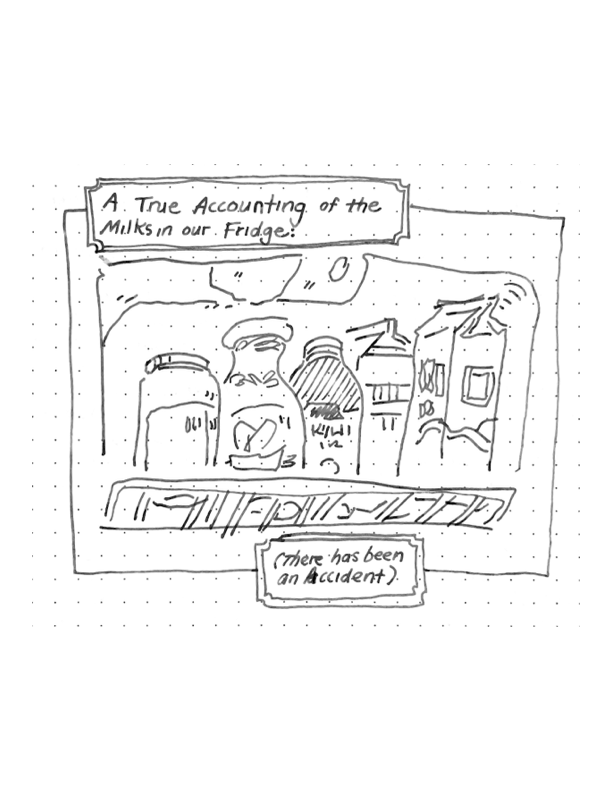 A True Accounting of the
Milks in our Fridge:
KIWI
(There has been
an Accident).